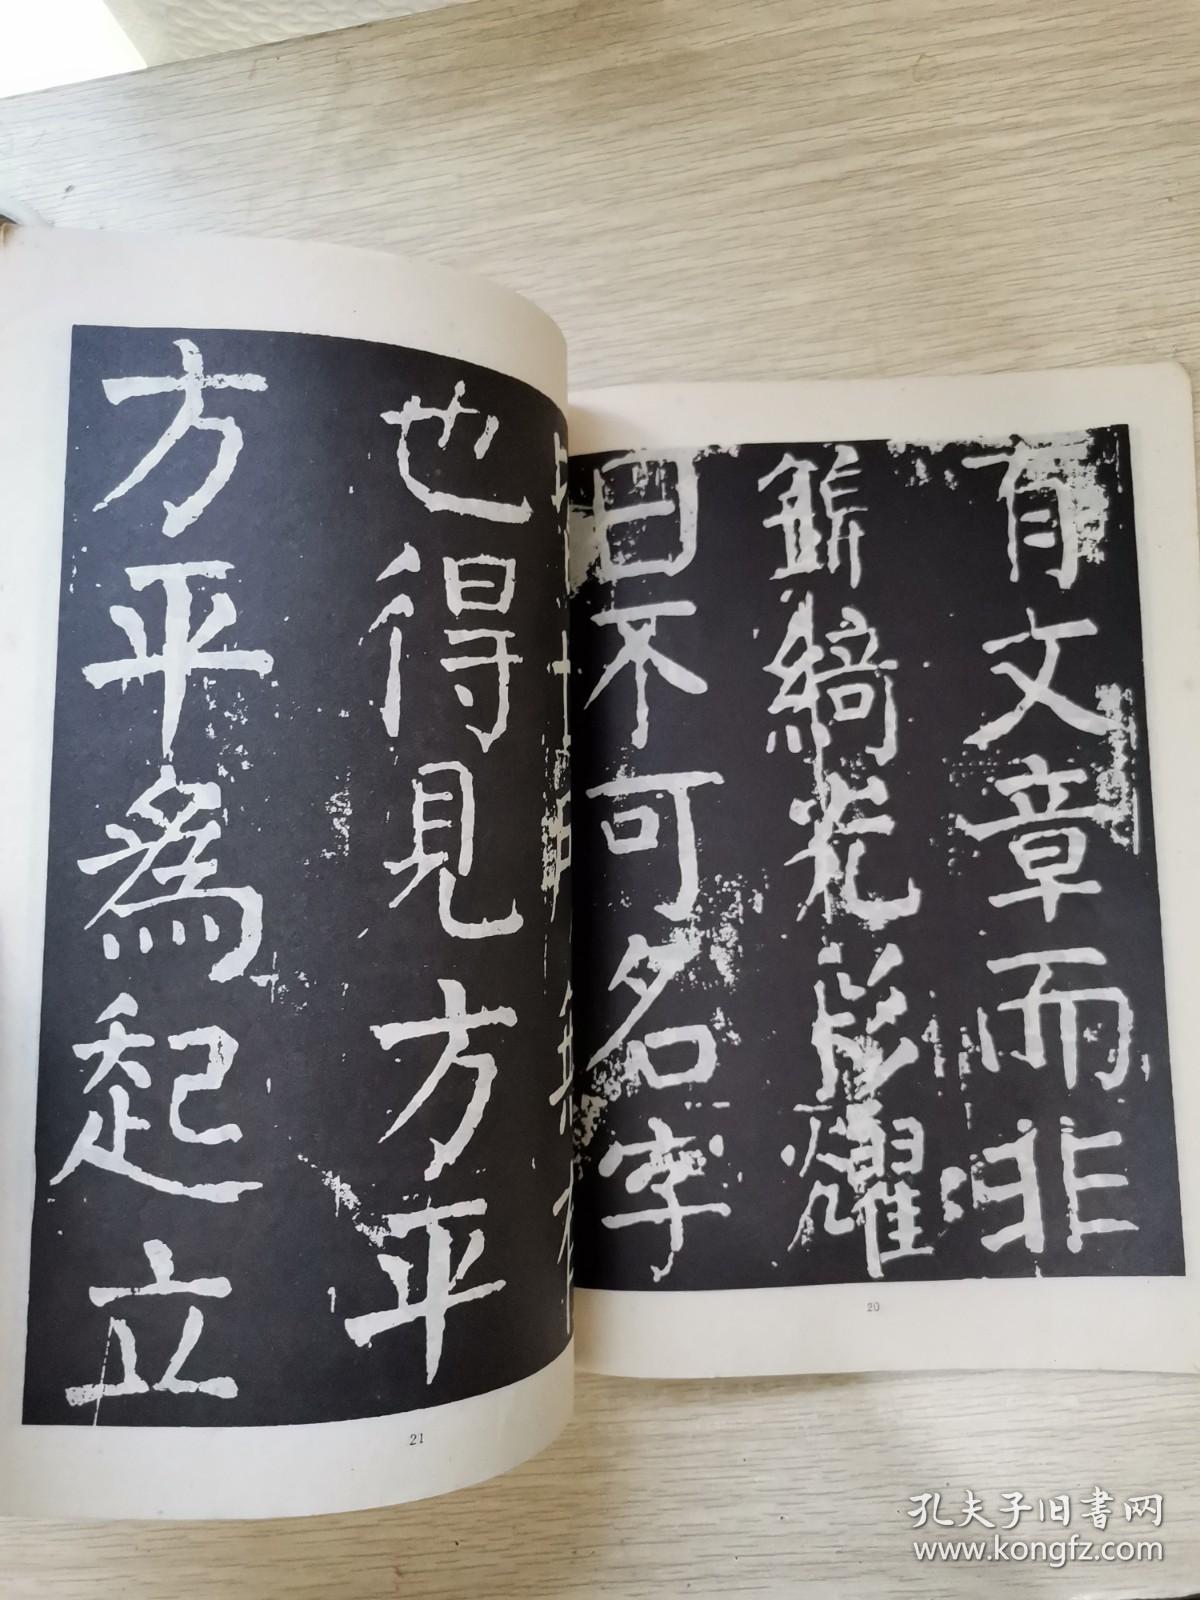 有文章而非
錦綺光彩耀
日不可名字
20
也得見方平
方平為起立
21
孔夫子旧書网
www.kongfz.com